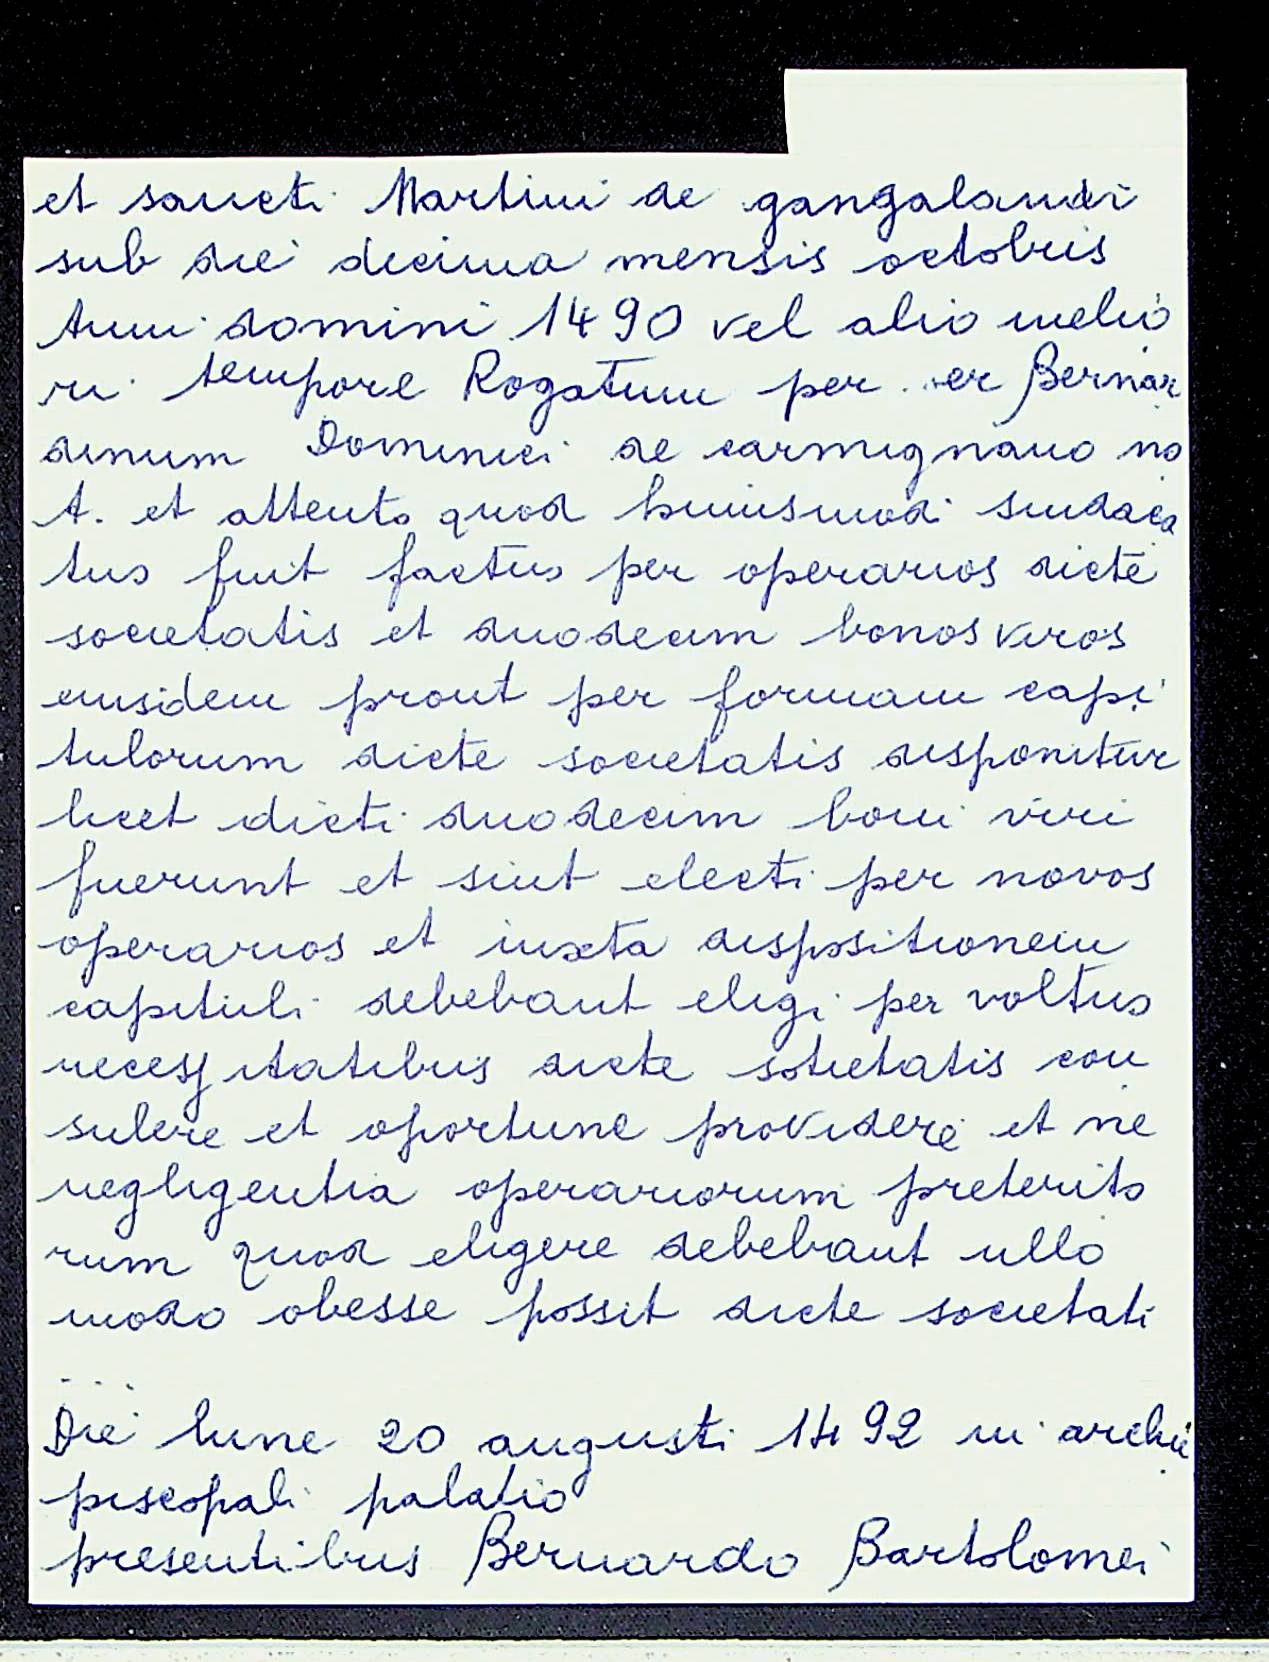 et sancti Martini de gangalandi
sub die decima mensis octobris
Anni domini 1490 vel alio melio
ri tempore Rogatum per ser Bernar
dinum Dominici de carmignano no
t. et attento quod huiusmodi sindaca
tus fuit factus per operarios dicte
societatis et duodecim bonos viros
eiusdem prout per formam capi
tulorum dicte societatis disponitur
licet dicti duodecim boni viri
fuerunt et sint electi per novos
operarios et iuxta dispositionem
capituli debebant eligi per voltus
necessitatibus dicte societatis con
sulere et oportune providere et ne
negligentia operariorum preterito
rum quod eligere debebant ullo
modo obesse possit dicte societati
...
Die lune 20 augusti 1492 in archie
piscopali palatio
presentibus Bernardo Bartolomei